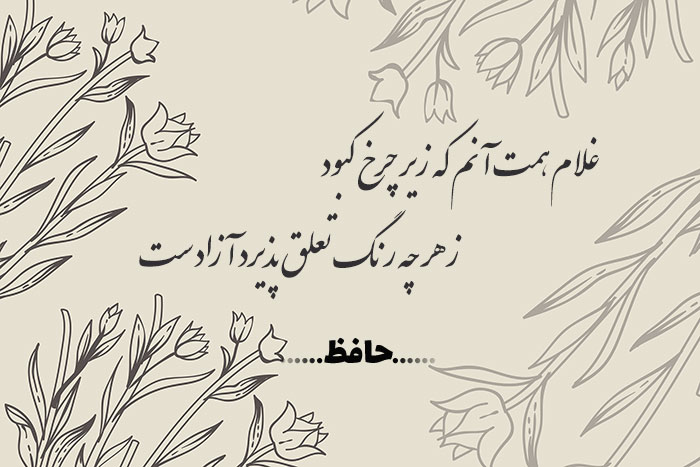 غلام همت آنم که زیر چرخ کبود
ز هر چه رنگ تعلق پذیرد آزادست
......حافظ......